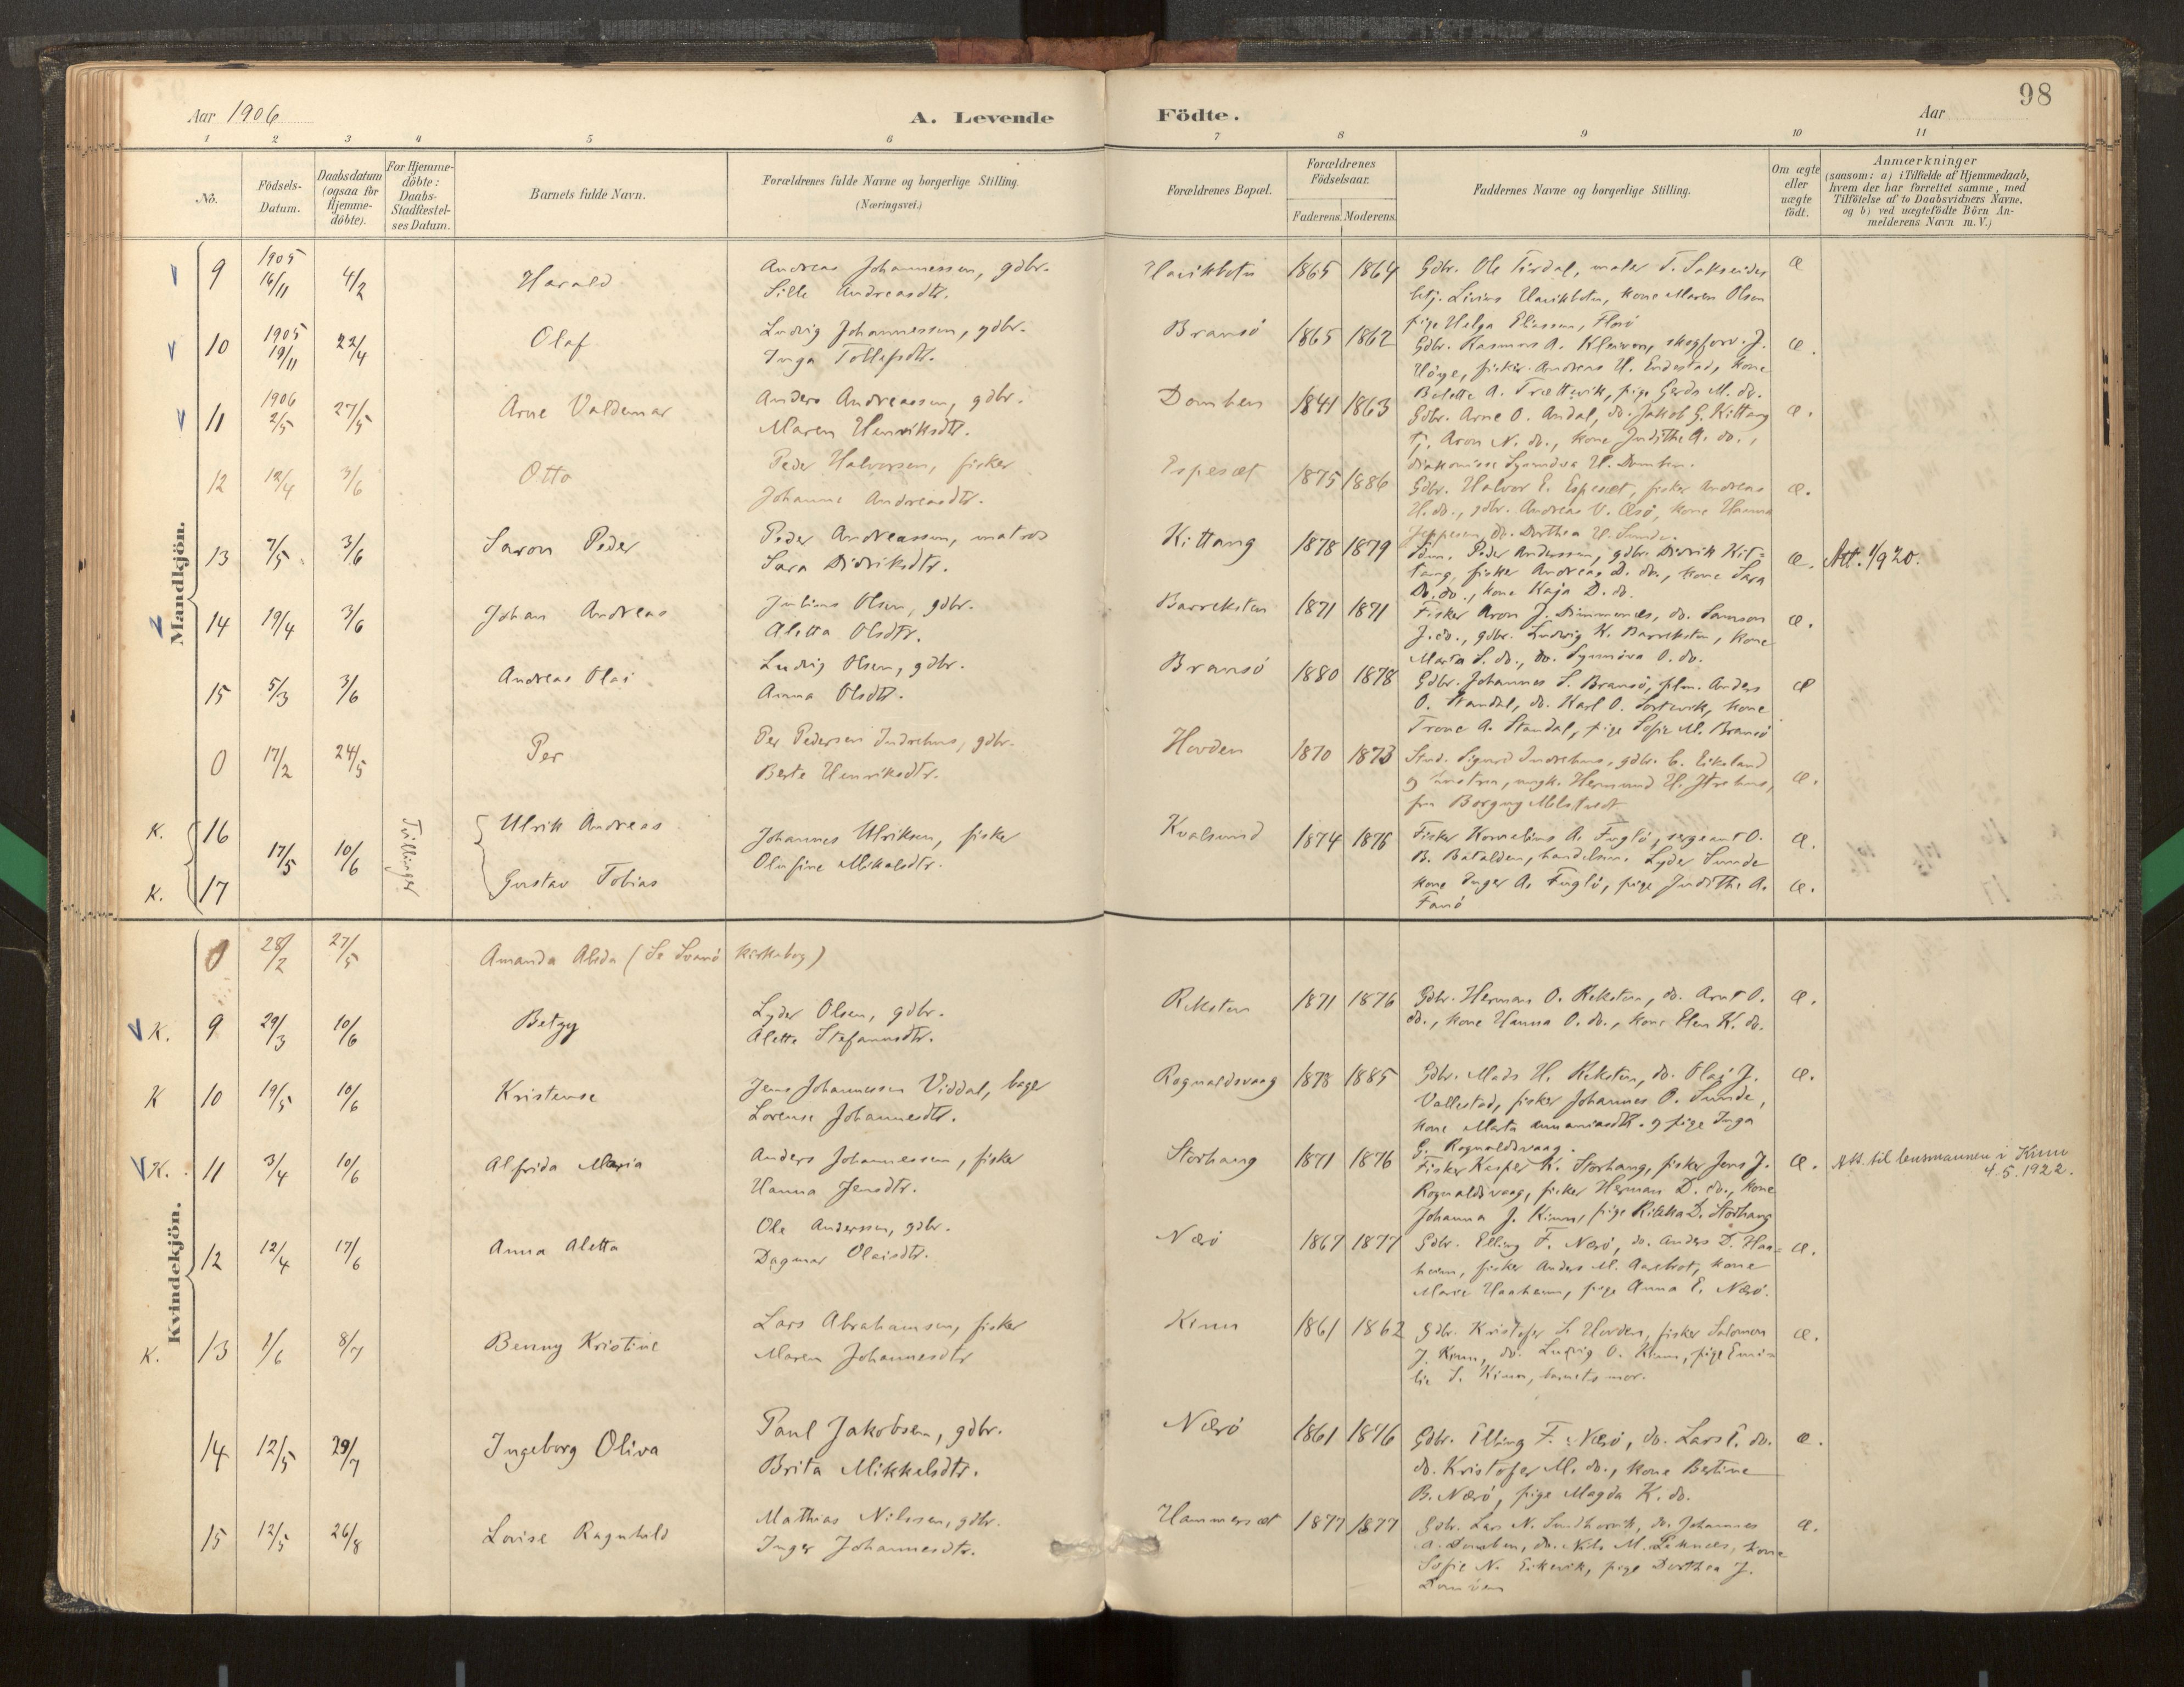 98
Aar 1906
A. Levende
Födte.
Aar
1 2 3 4 5 6 7 8 9 10 11
No.
Födsels-Datum.
Daabsdatum (ogsaa for Hjemme-döbte).
For Hjemme-döbte: Daabs-Stadfæstel-ses Datum.
Barnets fulde Navn.
Forældrenes fulde Navne og borgerlige Stilling.
(Næringsvei.)
Forældrenes Bopæl.
Forældrenes Födselsaar.
Faderens. Moderens.
Faddernes Navne og borgerlige Stilling.
Om ægte eller uægte födt.
Anmærkninger
(saasom: a) i Tilfælde af Hjemmedaab,
hvem der har forrettet samme, med
Tilföielse af to Daabsvidners Navne,
og b) ved uægtefödte Börn An-
melderens Navn m. V.)
Mandkjön.
9 1905 16/11 4/2 Harald
Andreas Johannessen, gdbr.
Sille Andreasdtr.
1865 1864
Gdbr. Ole Tirdal, maler T.
kone Maren Olsen
pige Helga Eliassen, Florö
æ
10 1905 19/11 22/4 Olaf
Ludvig Johannessen, gdbr.
Inga Tollefsdtr.
Bransö 1865 1862
Gdbr. Rasmus A. Kleiven, skogforv. J.
Höye, fisker Andreas H. Endestad, kone
Belette A. Trættevik, pige Gerda M. do.
æ.
11 1906 2/5 27/5 Arne Valdemar
Anders Andreassen, gdbr.
Maren Henriksdtr.
Domben 1841 1863
Gdbr. Arne O. Andal, do. Jakob G. Kittang
tj. Aron N. do., kone Judithe A. do.,
diakonisse Synnöva H. Domben.
æ.
12 12/4 3/6 Otto
Peder Halvorsen, fisker
Johanne Andreasdtr.
Espesæt 1875 1886
Gdbr. Halvor E. Espesæt, fisker Andreas
H. do., gdbr. Andreas V. kone Hanna
Jeppesen, do. Dorthea H. Sunde.
æ.
13 7/5 3/6 Saron Peder
Peder Andreassen, matros
Sara Didriksdtr.
Kittang 1878 1879
Peder Anderssen, gdbr. Didrik Kit-
tang, fisker Andreas D. do., kone Sara
D. do., kone Kaja D. do.
æ. Att. 1/9 20.
14 19/4 3/6 Johan Andreas
Julius Olsen, gdbr.
Aletta Olsdtr.
Barreksten 1871 1871
Fisker Aron J. Dimmenæs, do. Samson
J. do., gdbr. Ludvig K. Barreksten, kone
Marta S. do., do. Synnöva O. do.
æ.
15 5/3 3/6 Andreas Olai
Ludvig Olsen, gdbr.
Anna Olsdtr.
Bransö 1880 1878
Gdbr. Johannes S. Bransö, plm. Anders
O. Standal, do. Karl O. Sortevik, kone
Trone A. Standal, pige Sofie M. Bransö
æ
0 17/2 24/5 Per
Per Pedersen Indrehus, gdbr.
Berte Henriksdtr.
Hovden 1870 1873
Stud. Sigurd Indrehus, gdbr. C. Eikeland
og hustru, ungk. Hermund H. Ytrehus,
frn Borgny Melstvedt
æ.
K. 16
K. 17
17/5 10/6 Tvillinger
Ulrik Andreas
Gustav Tobias
Johannes Ulriksen, fisker
Olufine Mikalsdtr.
Kvalsund 1874 1876
Fisker Kornelius A. Fuglö, sergeant O.
B. Batalden, handelsm. Lyder Sunde
kone Inger A. Fuglö, pige Judithe A.
Fanö
æ.
æ.
Kvindekjön.
0 28/2 27/5 Amanda Alida (Se Svanö kirkebog)
K. 9 29/3 10/6 Betzy
Lyder Olsen, gdbr.
Alette Stefanusdtr.
Reksten 1871 1876
Gdbr. Herman O. Reksten, do. Arnt O.
do., kone Hanna O. do., kone Elen K. do.
æ.
K 10 19/5 10/6 Kristense
Jens Johannessen Viddal, bager
Lorense Johannesdtr.
Rognaldsvaag 1878 1885
Gdbr. Mads H. Reksten, do. Olai J.
Vallestad, fisker Johannes O. Sunde,
kone Marta Annaniasdtr. og pige Inga
G. Rognaldsvaag.
æ.
K. 11 3/4 10/6 Alfrida Maria
Anders Johannessen, fisker
Hanna Jensdtr.
Storhaug 1871 1876
Fisker Kasper K. Storhaug, fisker Jens J.
Rognaldsvaag, fisker Herman D. do., kone
Johanna J. Kinn, pige Rikka D. Storhaug
æ. Att. til lensmannen i Kinn
4.5.1922.
12 12/4 17/6 Anna Aletta
Ole Anderssen, gdbr.
Dagmar Olaisdtr.
Nærö 1867 1877
Gdbr. Elling F. Nærö, do. Anders D. Haa-
heim, fisker Anders M. Aarebrot, kone
Marie Haaheim, pige Anna E. Nærö.
æ.
K. 13 1/6 8/7 Benny Kristine
Lars Abrahamsen, fisker
Maren Johannesdtr
Kinn 1861 1862
Gdbr. Kristofer S. Hovden, fisker Salomon
J. Kinn, do. Ludvig O. Kinn, pige Emi-
lie S. Kinn, barnets mor.
æ.
14 12/5 29/7 Ingeborg Oliva
Paul Jakobsen, gdbr.
Brita Mikkelsdtr.
Nærö 1861 1876
Gdbr. Elling F. Nærö, do. Lars E. do.
do. Kristofer M. do., kone Bertine
B. Nærö, pige Magda K. do.
æ.
15 12/5 26/8 Lovise Ragnhild
Mathias Nilssen, gdbr.
Inger Johannesdtr.
Hammersæt 1877 1877
Gdbr. Lars N. do. Johannes
A. Domben, do. Nils M. kone
Sofie N. Eikevik, pige Dorthea J.
Domben
æ.